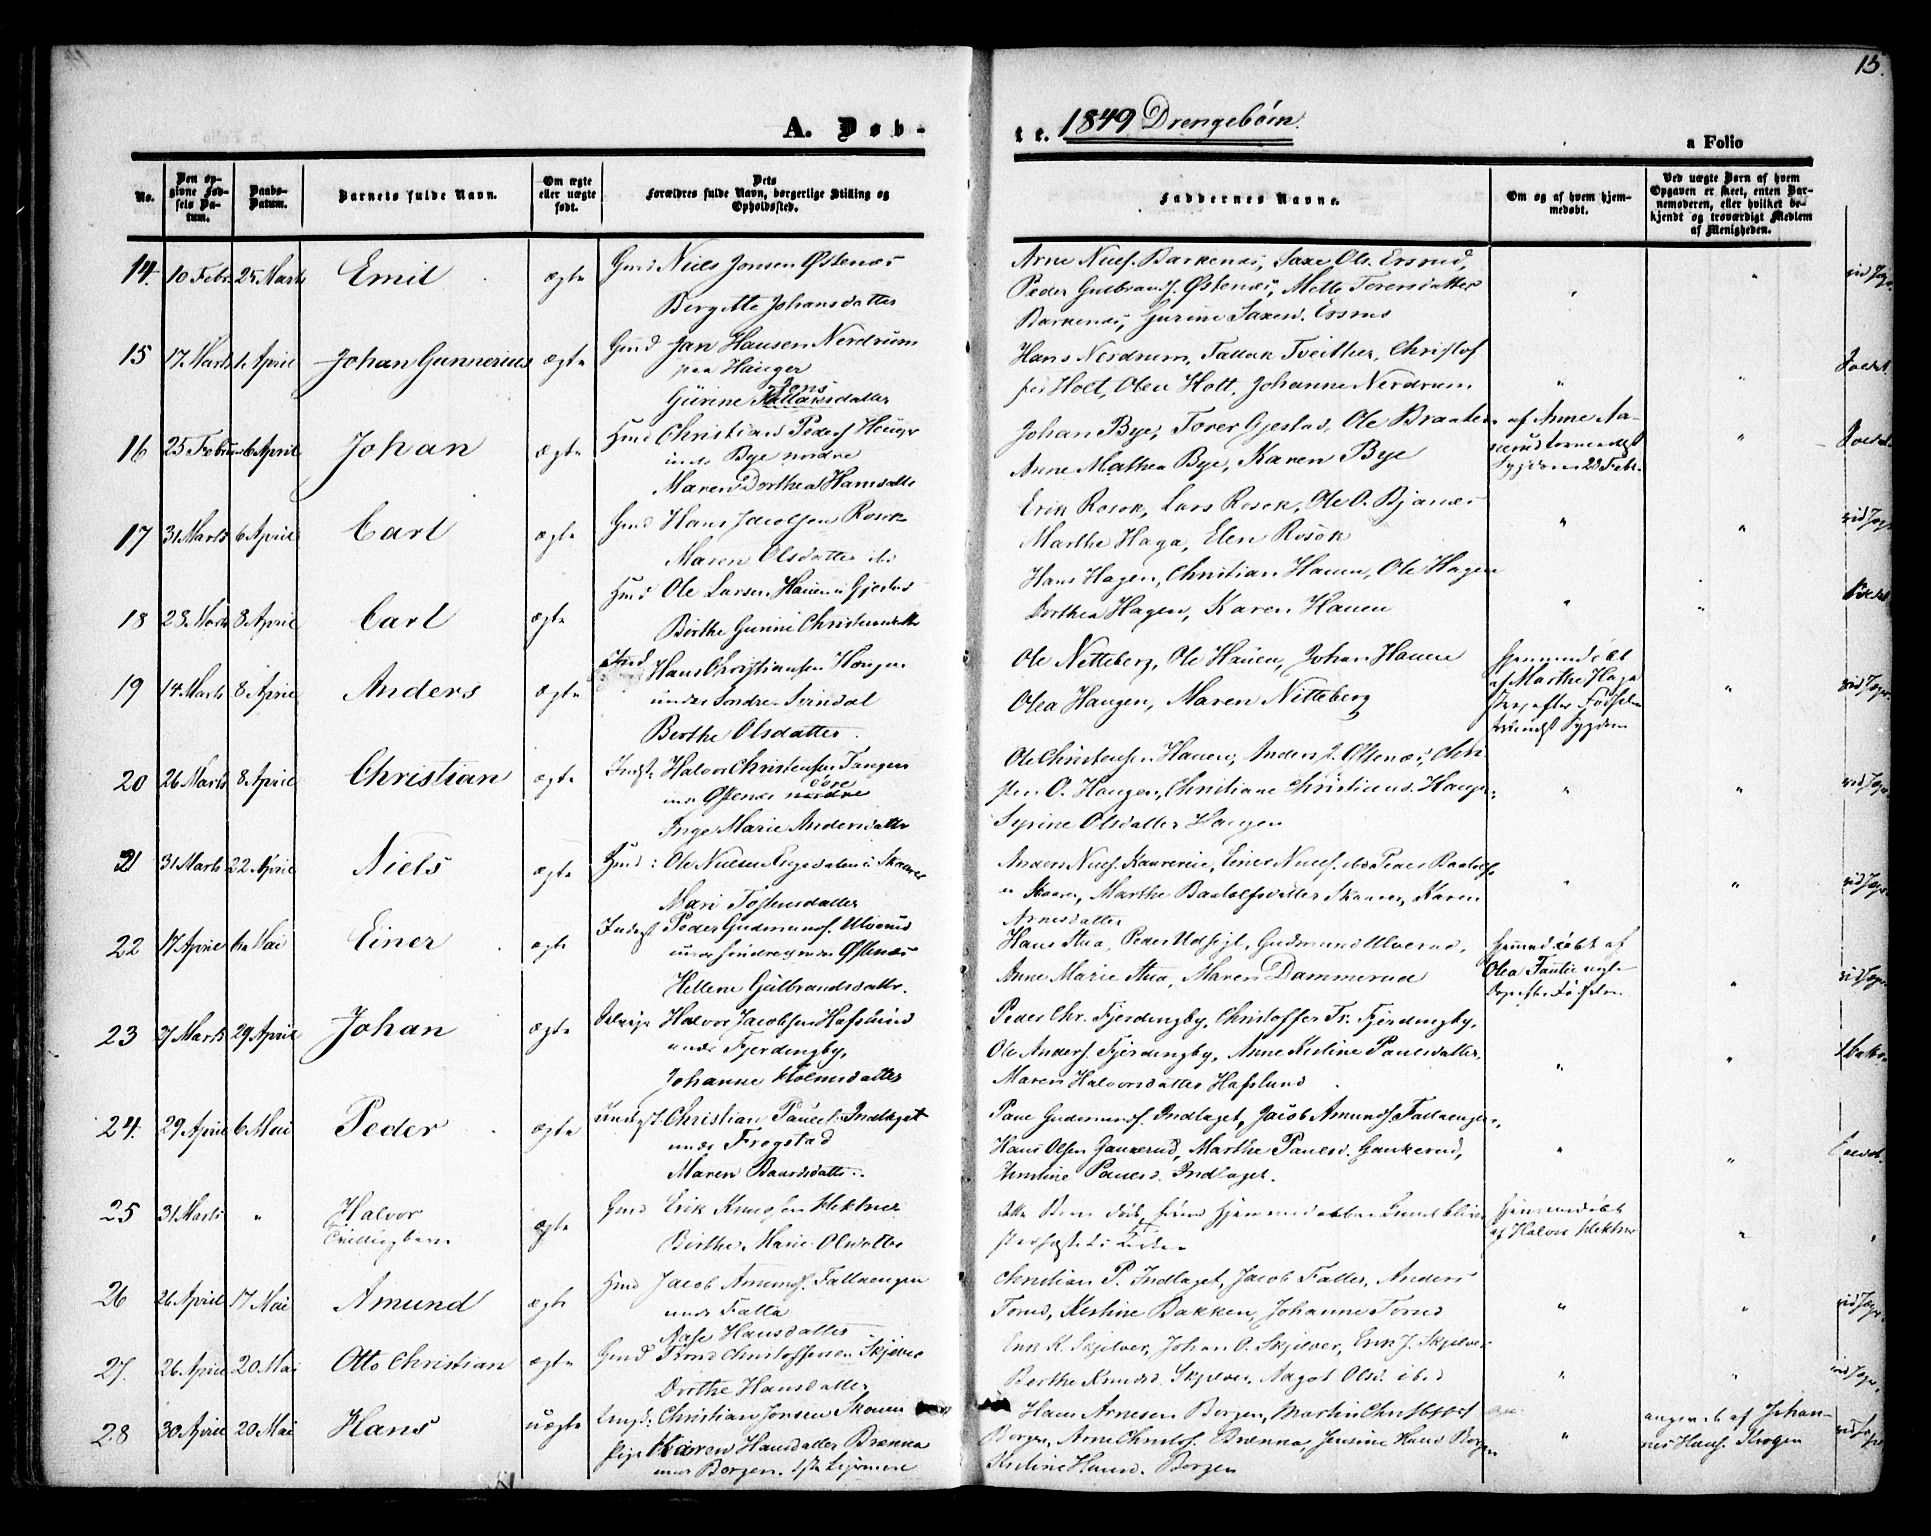 15.
A. Døb-
te. 1849 Drengebørn.
a Folio
No.
Den op-
givne Fød-
sels Da-
tum.
Daabs-
Datum.
Barnets fulde Navn.
Om ægte
eller uægte
født.
Dets
Forældres fulde Navn, borgerlige Stilling og
Opholdssted.
Faddernes Navne.
Om og af hvem hjem-
medøbt.
Ved uægte Børn af hvem
Opgaven er skeet, enten Bar-
nemoderen, eller hvilket be-
kjendt og troværdigt Medlem
af Menigheden.
14. 10 Febr. 25 Marts Emil ægte Gmd Niels Jonsen Østenæs
Bergitte Johansdatter
Arne Niels. Barkenæs, Saxe Ols. Ersrud,
Peder Gulbrands. Østenæs, Mette Torersdatter
Barkenæs, Gurine Saxesd. Ersrud
15 17 Marts 1 April Johan Gunnerius ægte Gmd Jan Hansen Nordrum
paa Hauger
Gurine Jons datter
Hans Nordrum, Christof
fer Holt, Olea Holt, Johanne Nordrum
16 25 Februar 6 April Johan ægte Hmd Christian Peders. Hauger
under Bye nordre
Maren Dorthea Hansdatter
Johan Bye, Torer Gjestad, Ole Braaten
Anne Mathea Bye, Karen Bye
af Anne Aa-
Sygdom 28 Febr.
17 31 Marts 6 April Carl ægte Gmd Hans Jacobsen Rosok
Maren Olsdatter ibd
Erik Rosok, Lars Rosok, Ole O. Bjanæs
Marthe Haga, Elen Rosok
18 28 Marts 8 April Carl ægte Hmd Ole Larsen Hauen i Gjestad
Birthe Gurine Christensdatter
Hans Hagen, Christian Hauen, Ole Hagen
Dorthea Hagen, Karen Hauen
19 14 Marts 8 April Anders ægte Hans Christiansen Haugen
under Søndre Svindal
Berthe Olsdatter.
Ole Netteberg, Ole Hauen, Johan Hauen
Olea Haugen, Maren Nitteberg
hjemmedøbt
af Marthe Haga
strax efter Fødselen
formedelst Sygdom
20 26 Marts 8 April Christian ægte Indst. Halvor Christensen Tangen
under Østenæs øvre nordre
Inge Marie Andersdatter
Ole Christensen Hauen, Anders J. Østenæs, Chri-
sten O. Haugen, Christiane Christians. Haugen,
Syrine Olsdatter Haugen
21 31 Marts 22 April Niels ægte Gmd: Ole Nielsen Engedalen i Skaarer
Mari Tostensdatter
Marthe Baalolfsdatter Skaarer, Karen
Arnesdatter
22 17 April 6 Mai Einer ægte Indst Peder Gudmunds. Ulverud
under Søndre Østenæs
Hellene Gulbrandsdatter.
Hans Stua, Peder Udsigt, Gudmund Ulverud,
Anne Marie Stua, Maren Dammerud
Hjemmedøbt af
Olea
strax efter Fødselen
23 7 Marts 29 April Johan ægte Halvor Jacobsen Hafslund
under Fjerdingby,
Johanne Holmsdatter
Peder Chr. Fjerdingby, Christoffer Fr. Fjerdingby,
Ole Anders. Fjerdingby, Anne Kirstine Paulsdatter,
Maren Halvorsdatter Hafslund
24. 29 April 6 Mai Peder ægte Indst. Christian Pauels. Indlaget
under Frogstad
Maren Baardsdatter
Paul Gudmunds. Indlaget, Jacob Amunds. Fallaengen,
Hans Olsen Gaukerud, Marthe Paulsd. Gaukerud,
Kirstine Paulsd. Indlaget.
25 31 Marts " Halvor
Tvillingbarn
ægte Gmd Erik Knudsen Hektner
Birthe Marie Olsdatter
Hjemmedøbt
af Halvor Hektner
26 26 April 17 Mai Amund ægte Hmd Jacob Amunds. Fallaengen
under Falla
Aase Hansdatter
Christian P. Indlaget, Jacob Falla, Anders
Tomd, Kirstine Bakken, Johanne Tomd
27. 26 April 20 Mai Otto Christian ægte Gmd Trond Christoffersen Skjelver
Dorthe Hansdatter
Erik K. Skjelver, Johan O. Skjelver, Erik J. Skjelver
Berthe Knudsd. Skjelver, Aagot Olsd. ibid
28 30 April 20 Mai Hans uægte Ungk: Christian Jonsen Skauen
Pige Karen Hansdatter Brænna
under Borgen. 1ste Leiermaal
Hans Arnesen Borgen, Martin Christoffers.
Borgen, Arne Christofs. Brænna, Jensine Hansd Borgen
Kirstine Hansd. Borgen
angivet af Johan-
nes Hans. Krogen